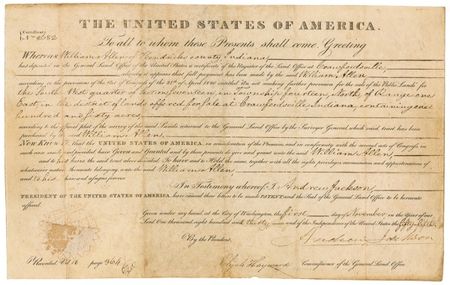 THE UNITED STATES OF AMERICA.
Certificate
No. 682
To all to whom these Presents shall come, Greeting
Whereas William Allen of Hendricks county Indiana
has deposited in the General Land Office of the United States a certificate of the Register of the Land Office at Crawfordsville
whereby it appears that full payment has been made by the said William Allen
according to the provisions of the Act of Congress of the 24th of April 1820 entitled "An act making further provision for the sale of the Public Lands" for
the South West quarter of Section Seventeen in Township fourteen North of Range one
East in the district of lands offered for sale at Crawfordsville Indiana, containing one
hundred and sixty acres,
according to the official plat of the survey of the said Lands returned to the General Land Office by the Surveyor General, which said tract has been
purchased by the said William Allen,
Now Know Ye that the UNITED STATES OF AMERICA in consideration of the Premises and in conformity with the several acts of Congress in
such case made and provided have Given and Granted and by these presents do give and grant unto the said William Allen
and to his heirs the said tract above described: To have and to Hold the same, together with all the rights privileges immunities and appurtenances of
whatsoever nature thereunto belonging unto the said William Allen
and to his heirs and assigns forever.
In Testimony whereof I, Andrew Jackson,
PRESIDENT OF THE UNITED STATES OF AMERICA, have caused these letters to be made PATENT and the Seal of the General Land Office to be hereunto
affixed.
Given under my hand at the City of Washington, the first day of November in the Year of our
Lord One thousand eight hundred and thirty and of the Independence of the United States the fifty fifth
By the President,
Andrew Jackson
Recorded Vol. page 364
Elijah Hayward Commissioner of the General Land Office.